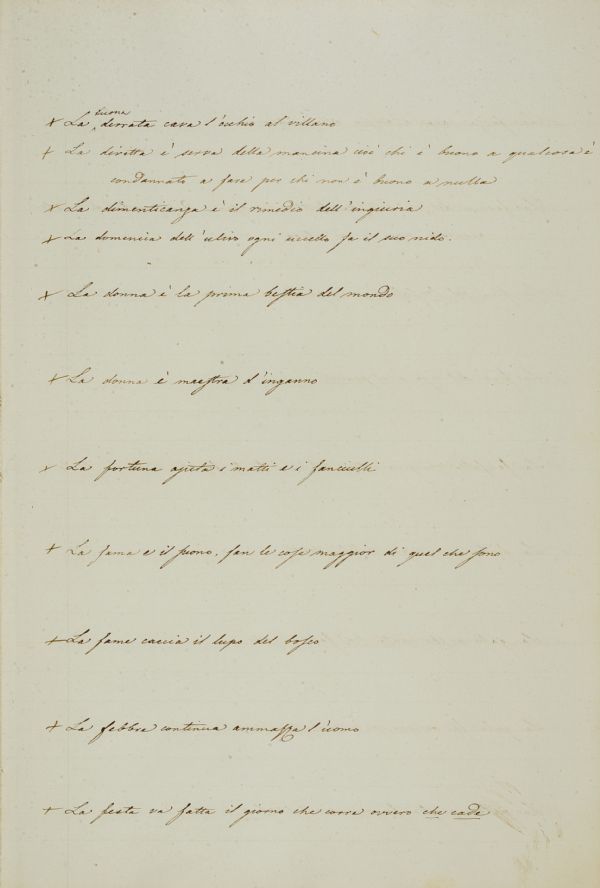 + La buona derrata cava l'occhio al villano
+ La diretta è serva della mancina cioè chi è buono a qualcosa è
condannato a fare per chi non è buono a nulla
+ La dimenticanza è il rimedio dell'ingiuria
+ La domenica dell'ulivo ogni uccello fa il suo nido.
+ La donna è la prima bestia del mondo
+ La donna è maestra d'inganno
+ La fortuna ajuta i matti e i fanciulli
+ La fama e il suono, fan le cose maggior di quel che sono
+ La fame caccia il lupo del bosco
+ La febbre continua ammazza l'uomo
+ La festa va fatta il giorno che corre ovvero che cade